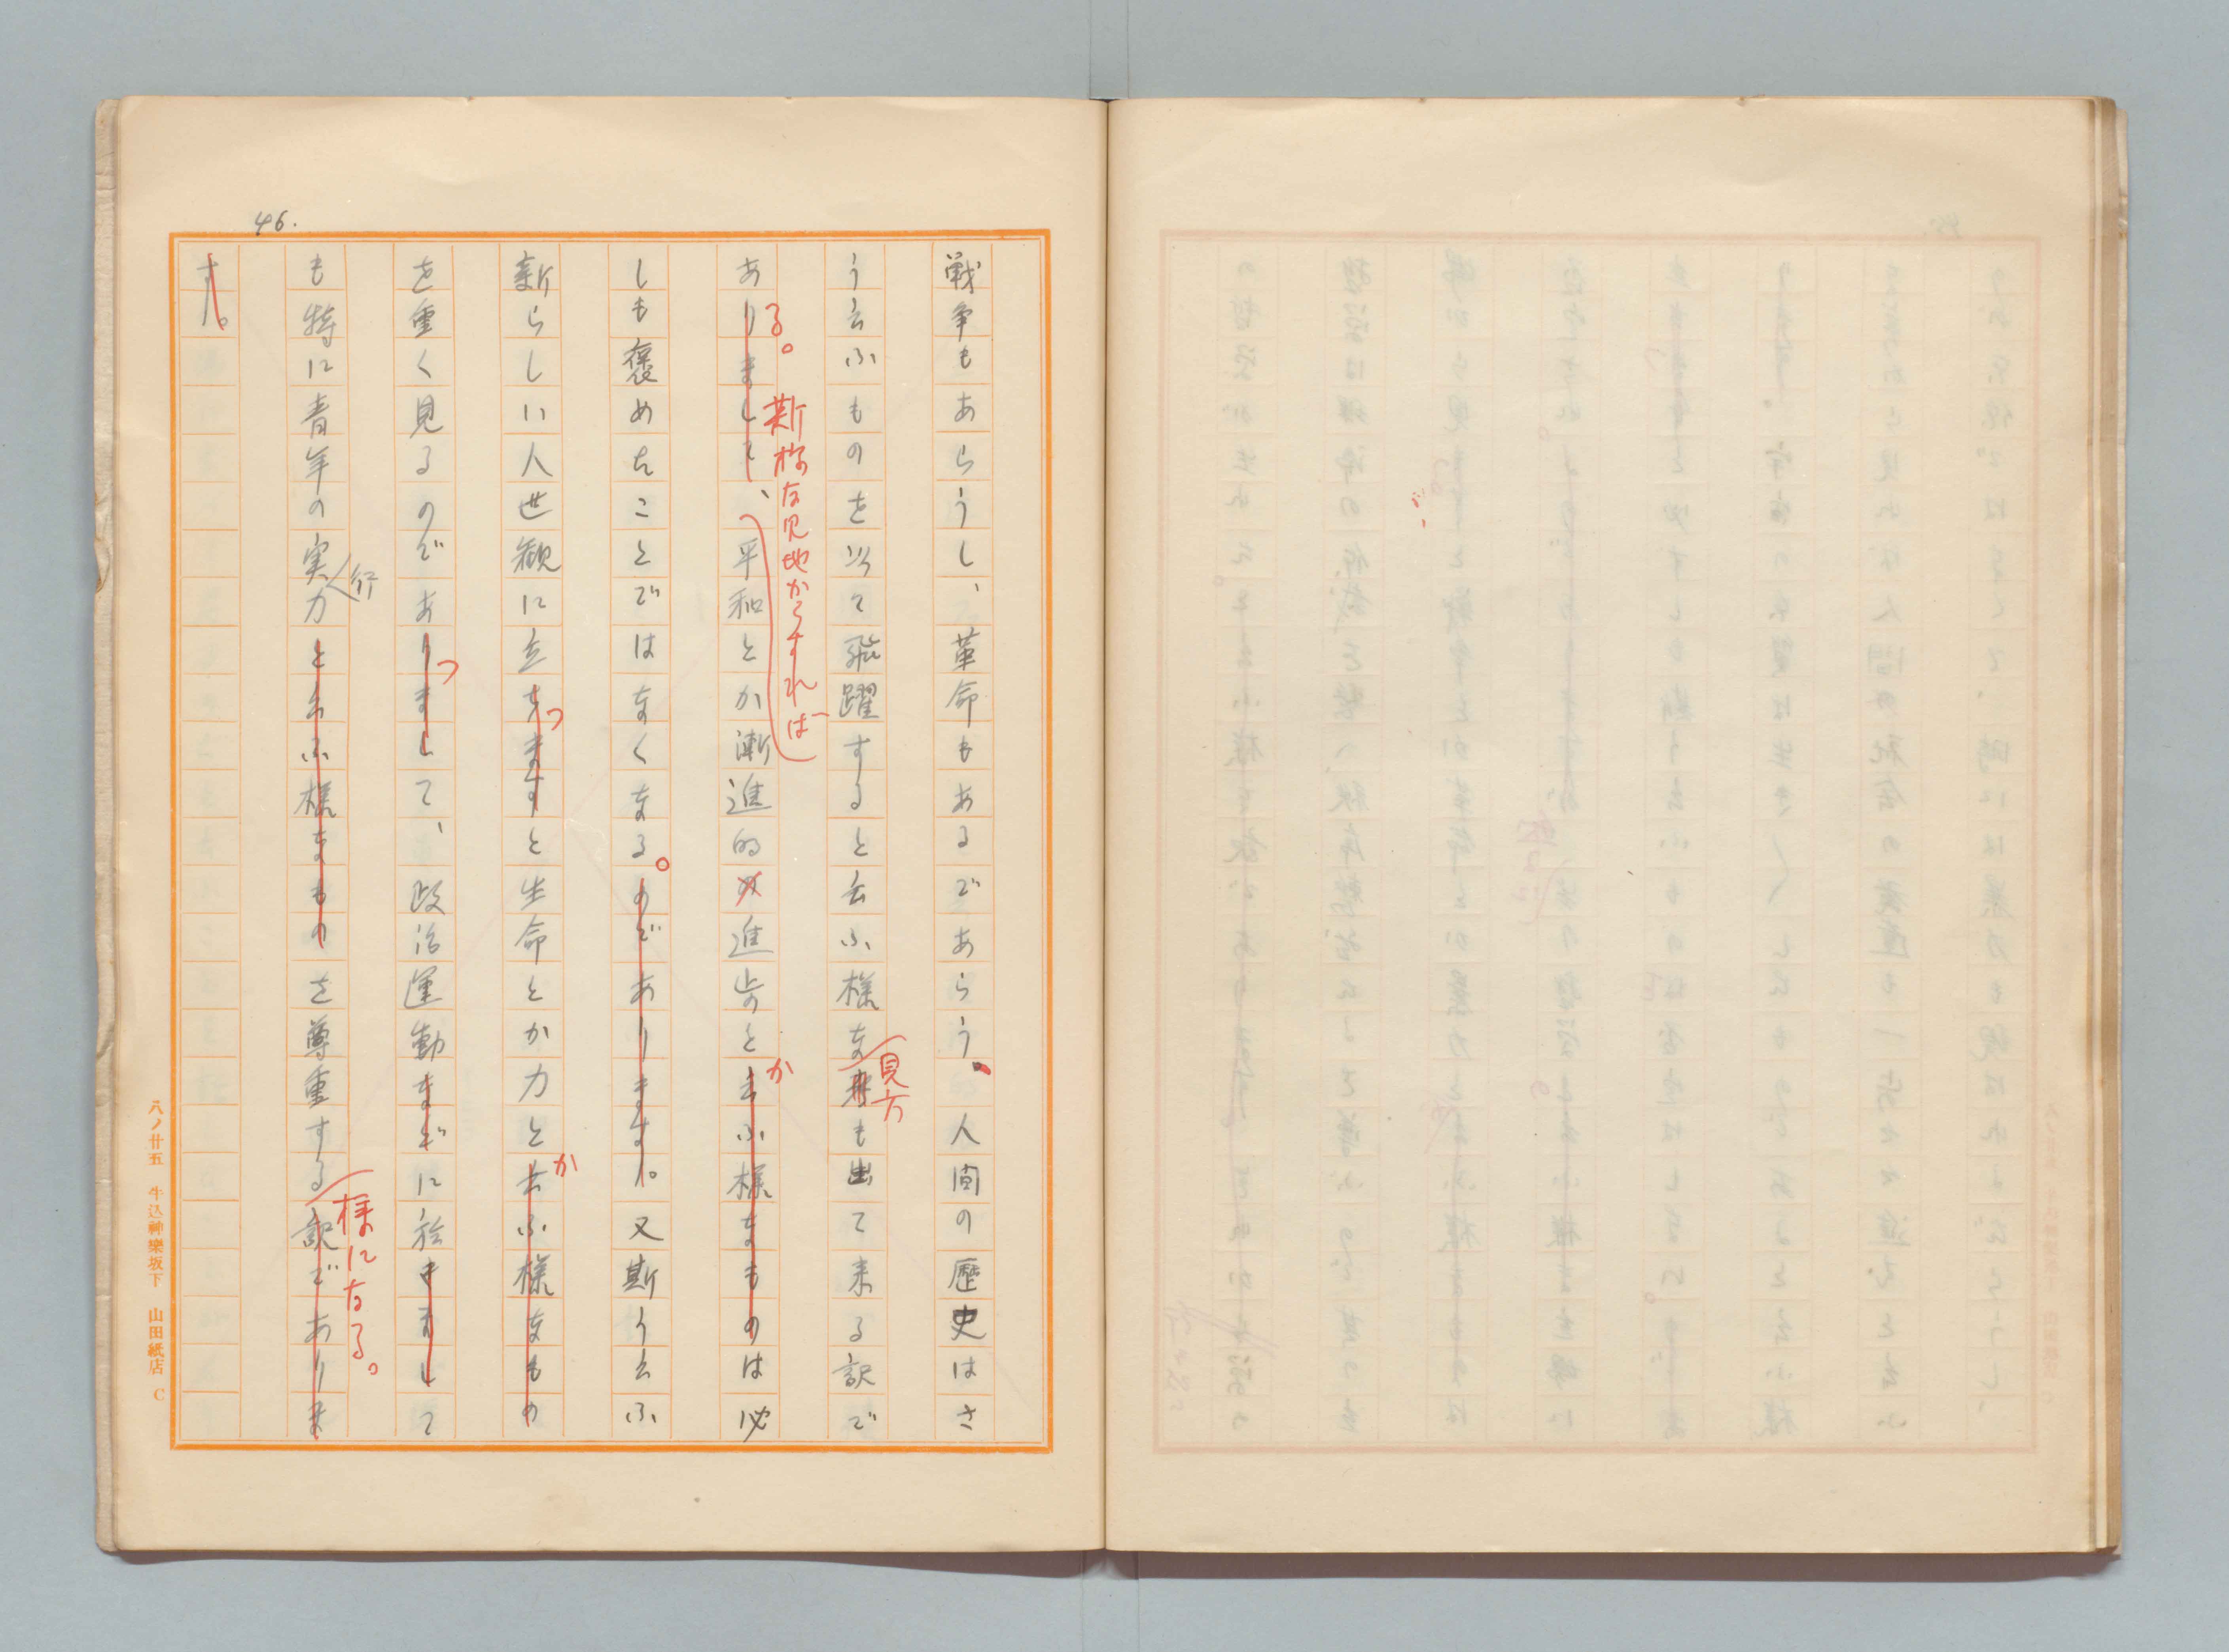 46.
戦争もあらうし、革命もあるであらう。人間の歴史はさ
う云ふものを以て飛躍すると云ふ様な考も出て来る訳で
見方
ありまして、平和とか漸進的の進歩と云ふ様なものは必
る。
斯様な見地からすれば
か
しも褒めたことではなくなる。のであります。又斯う云ふ
新らしい人世観に立ちますと生命とか力と云ふ様なもの
つ
か
を重く見るのでありまして、政治運動などに於きまして
つ
も特に青年の実力と云ふ様なものを尊重する訳でありま
行
様になる。
す。
八ノ廿五 牛込神樂坂下 山田紙店 C